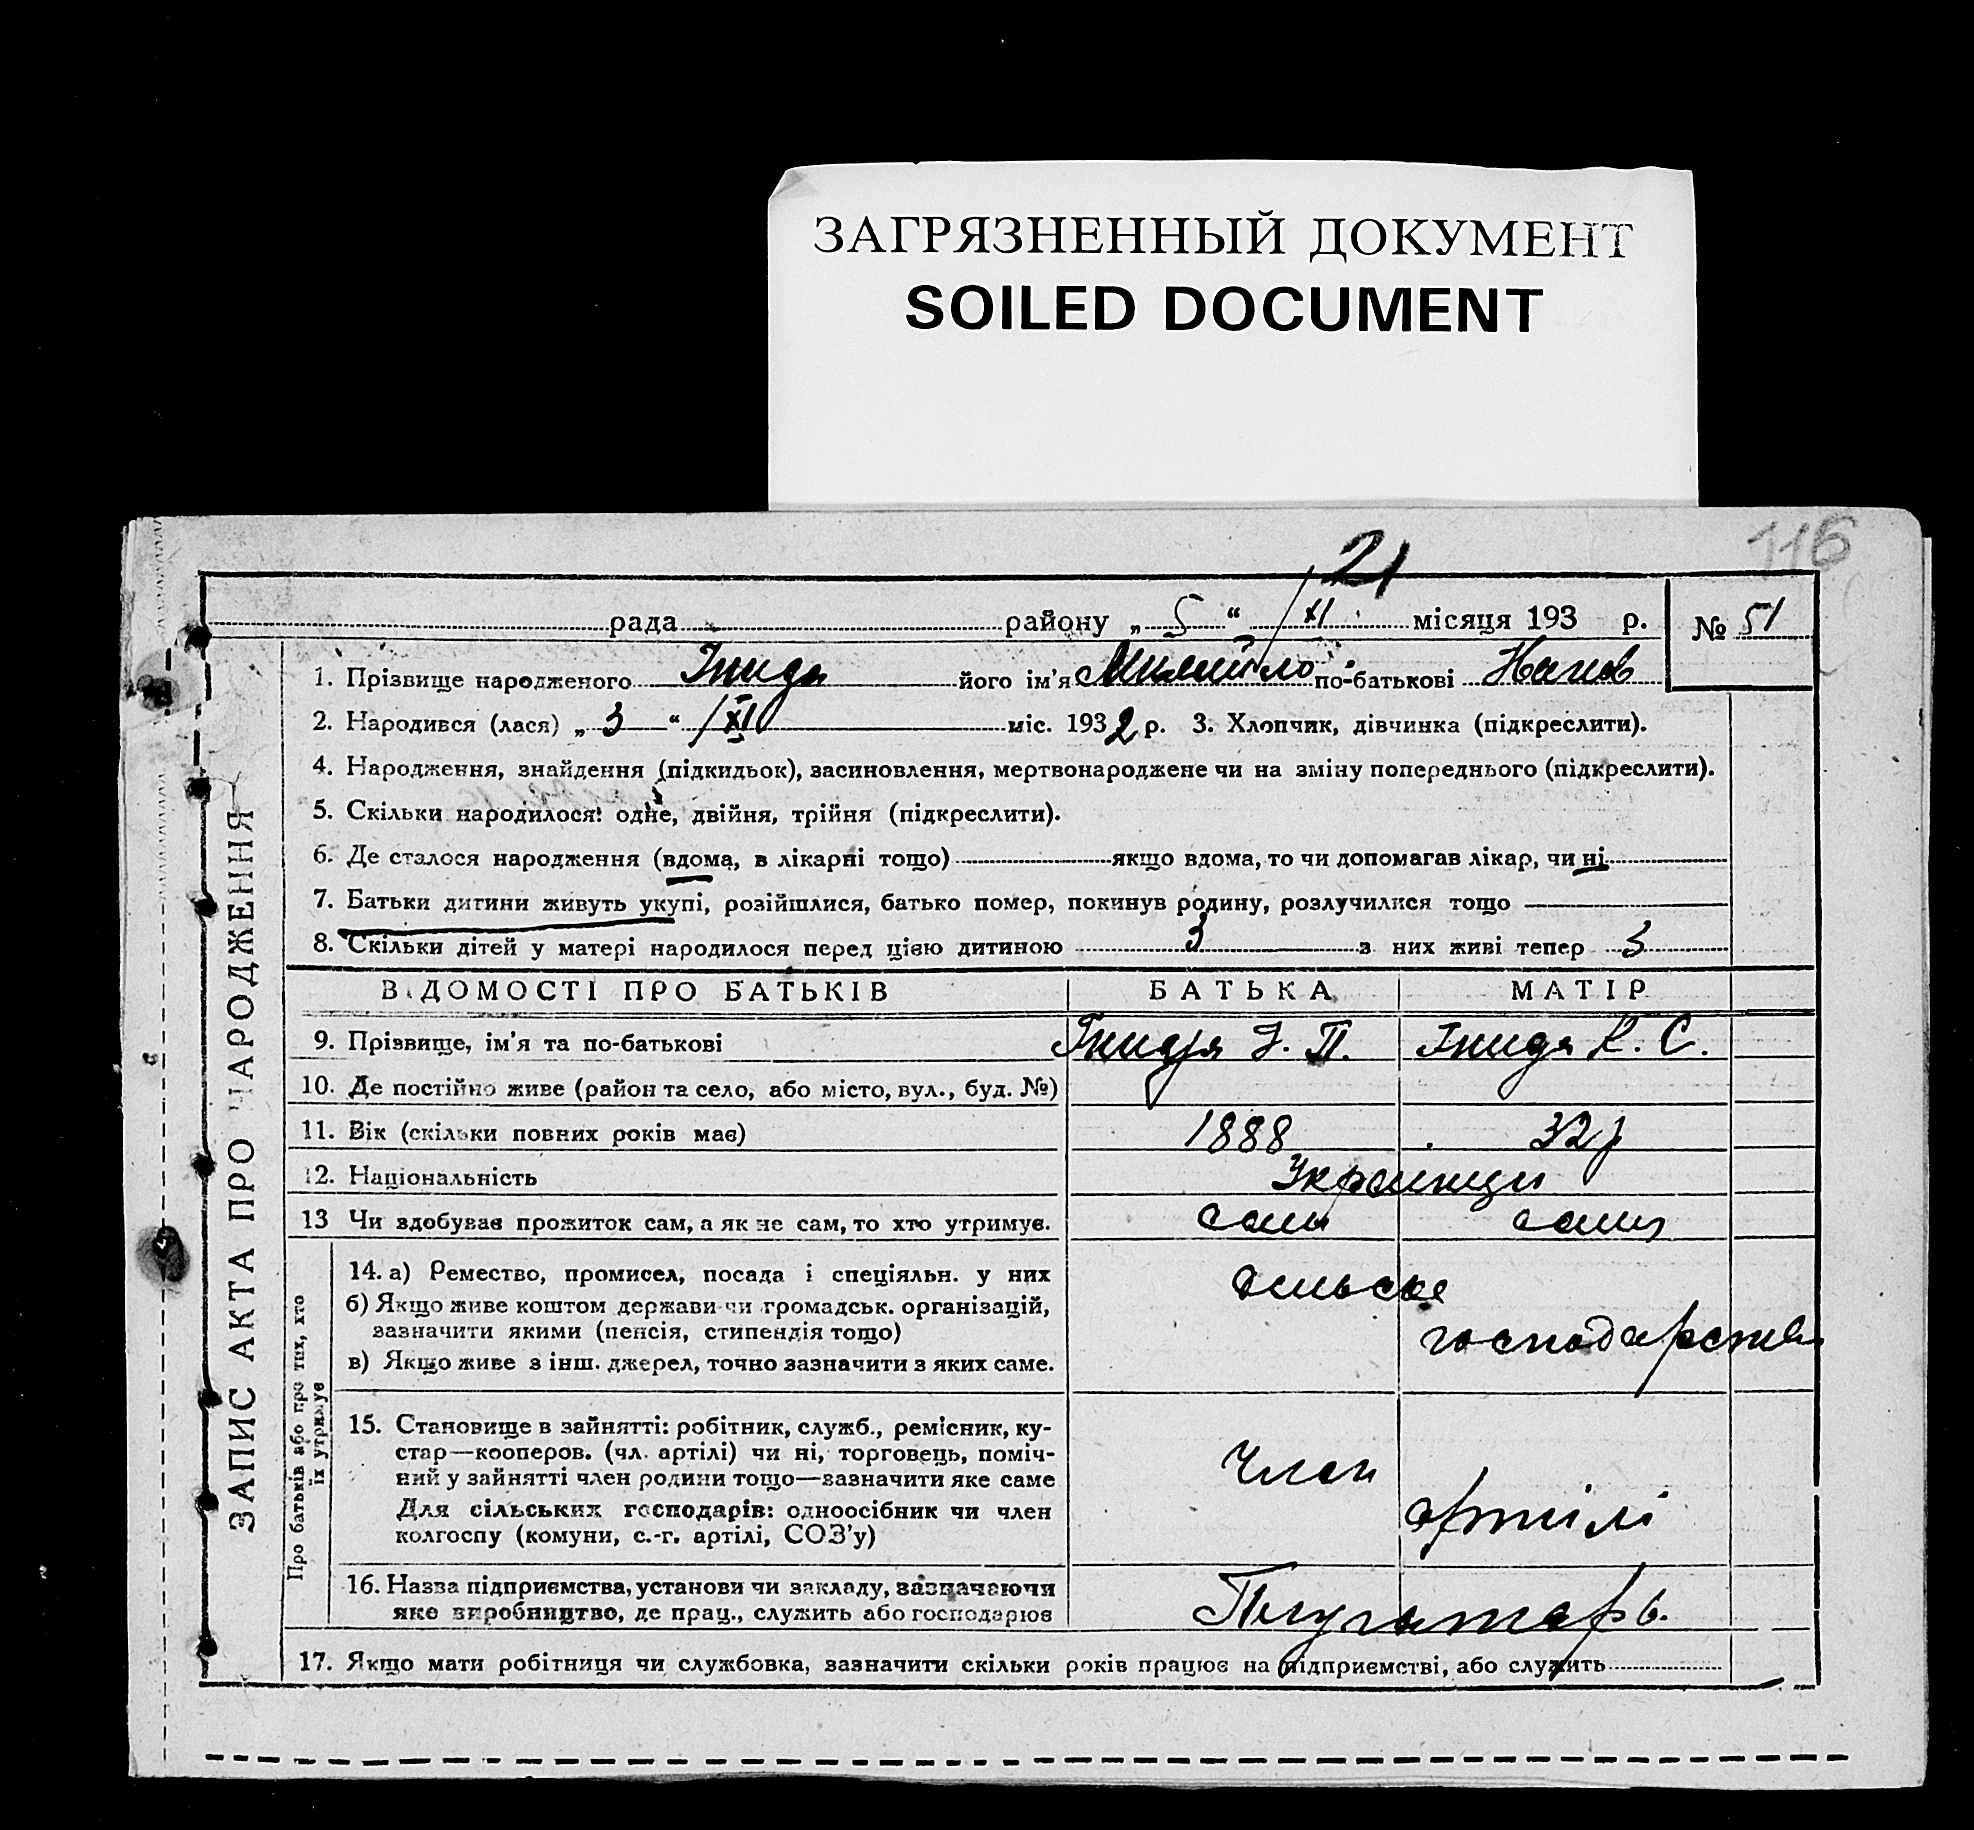 ЗАГРЯЗНЕННЫЙ ДОКУМЕНТ
SOILED DOCUMENT
116
21
рада районy „ 5 “ /XI місяця 193 р. № 51
1. Прізвище народженого Гнида його ім'я Михайло по-батькові
2. Народився (лася) „ 3 “ /XI міс. 1932 р. 3. Хлопчик, дівчинка (підкреслити).
4. Народження, знайдення (підкидьок), засиновлення, мертвонароджене чи на зміну попереднього (підкреслити).
5. Скільки народилося: одне, двійня, трійня (підкреслити).
6. Де сталося народження (вдома, в лікарні тощо) якщо вдома, то чи допомагав лікар, чи ні
7. Батьки дитини живуть укупі, розійшлися, батько помер, покинув родину, розлучилися тощо
8. Скільки дітей у матері народилося перед цією дитиною 3 з них живі тепер 3
ВІДОМОСТІ ПРО БАТЬКІВ БАТЬКА МАТІР
9. Прізвище, ім'я та по-батькові Гнидя Й. П. Гнидя К. С.
10. Де постійно живе (район та село, або місто, вул., буд. №)
11. Вік (скільки повних років має) 1888 32 р
12. Національність Українци
13 Чи здобував прожиток сам, а як не сам, то хто утримує. сами сами
14. а) Ремество, промисел, посада і спеціяльн. у них
б) Якщо живе коштом держави чи громадськ. організацій,
зазначити якими (пенсія, стипендія тощо)
в) Якщо живе з інш. джерел, точно зазначити з яких саме.
сільське
господарство
15. Становище в зайнятті: робітник, служб., ремісник, ку-
стар—кооперов. (чл. артілі) чи ні, торговець, поміч-
ний у зайнятті член родини тощо—зазначити яке саме
Для сільських господарів: одноосібник чи член
колгоспу (комуни, с.-г. артілі, СОЗ'у)
Член
артілі
16. Назва підприємства, установи чи закладу, зазначаючи
яке виробництво, де прац., служить або господарює
Плугатарь.
17. Якщо мати робітниця чи службовка, зазначити скільки років працює на підприємстві, або служить
ЗАПИС АКТА ПРО НАРОДЖЕННЯ
Про батьків або про тих, хто
їх утримує